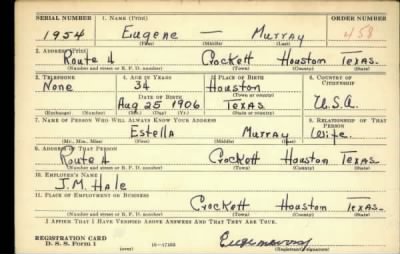 SERIAL NUMBER 1. NAME (Print) ORDER NUMBER
1954 Eugene — Murray 458
(First) (Middle) (Last)
2. ADDRESS (Print)
Route 4 Crockett Houston Texas
(Number and street or R. F. D. number) (Town) (County) (State)
3. TELEPHONE 4. AGE IN YEARS 5. PLACE OF BIRTH 6. COUNTRY OF CITIZENSHIP
None 34 Houston
DATE OF BIRTH (Town or county)
Aug 25 1906 Texas U.S.A.
(Exchange) (Number) (Mo.) (Day) (Yr.) (State or country)
7. NAME OF PERSON WHO WILL ALWAYS KNOW YOUR ADDRESS 8. RELATIONSHIP OF THAT PERSON
Estella Murray Wife
(Mr., Mrs., Miss) (First) (Middle) (Last)
9. ADDRESS OF THAT PERSON
Route 4 Crockett Houston Texas
(Number and street or R. F. D. number) (Town) (County) (State)
10. EMPLOYER'S NAME
J.M. Hale
11. PLACE OF EMPLOYMENT OR BUSINESS
Crockett Houston Texas
(Number and street or R. F. D. number) (Town) (County) (State)
I AFFIRM THAT I HAVE VERIFIED ABOVE ANSWERS AND THAT THEY ARE TRUE.
REGISTRATION CARD
D. S. S. Form 1 (over) 16—17105 (Registrant's signature)